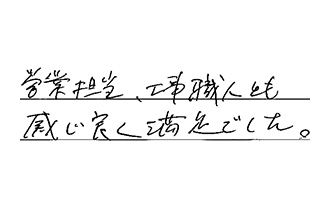 営業担当、工事職人とも
感じ良く満足でした。